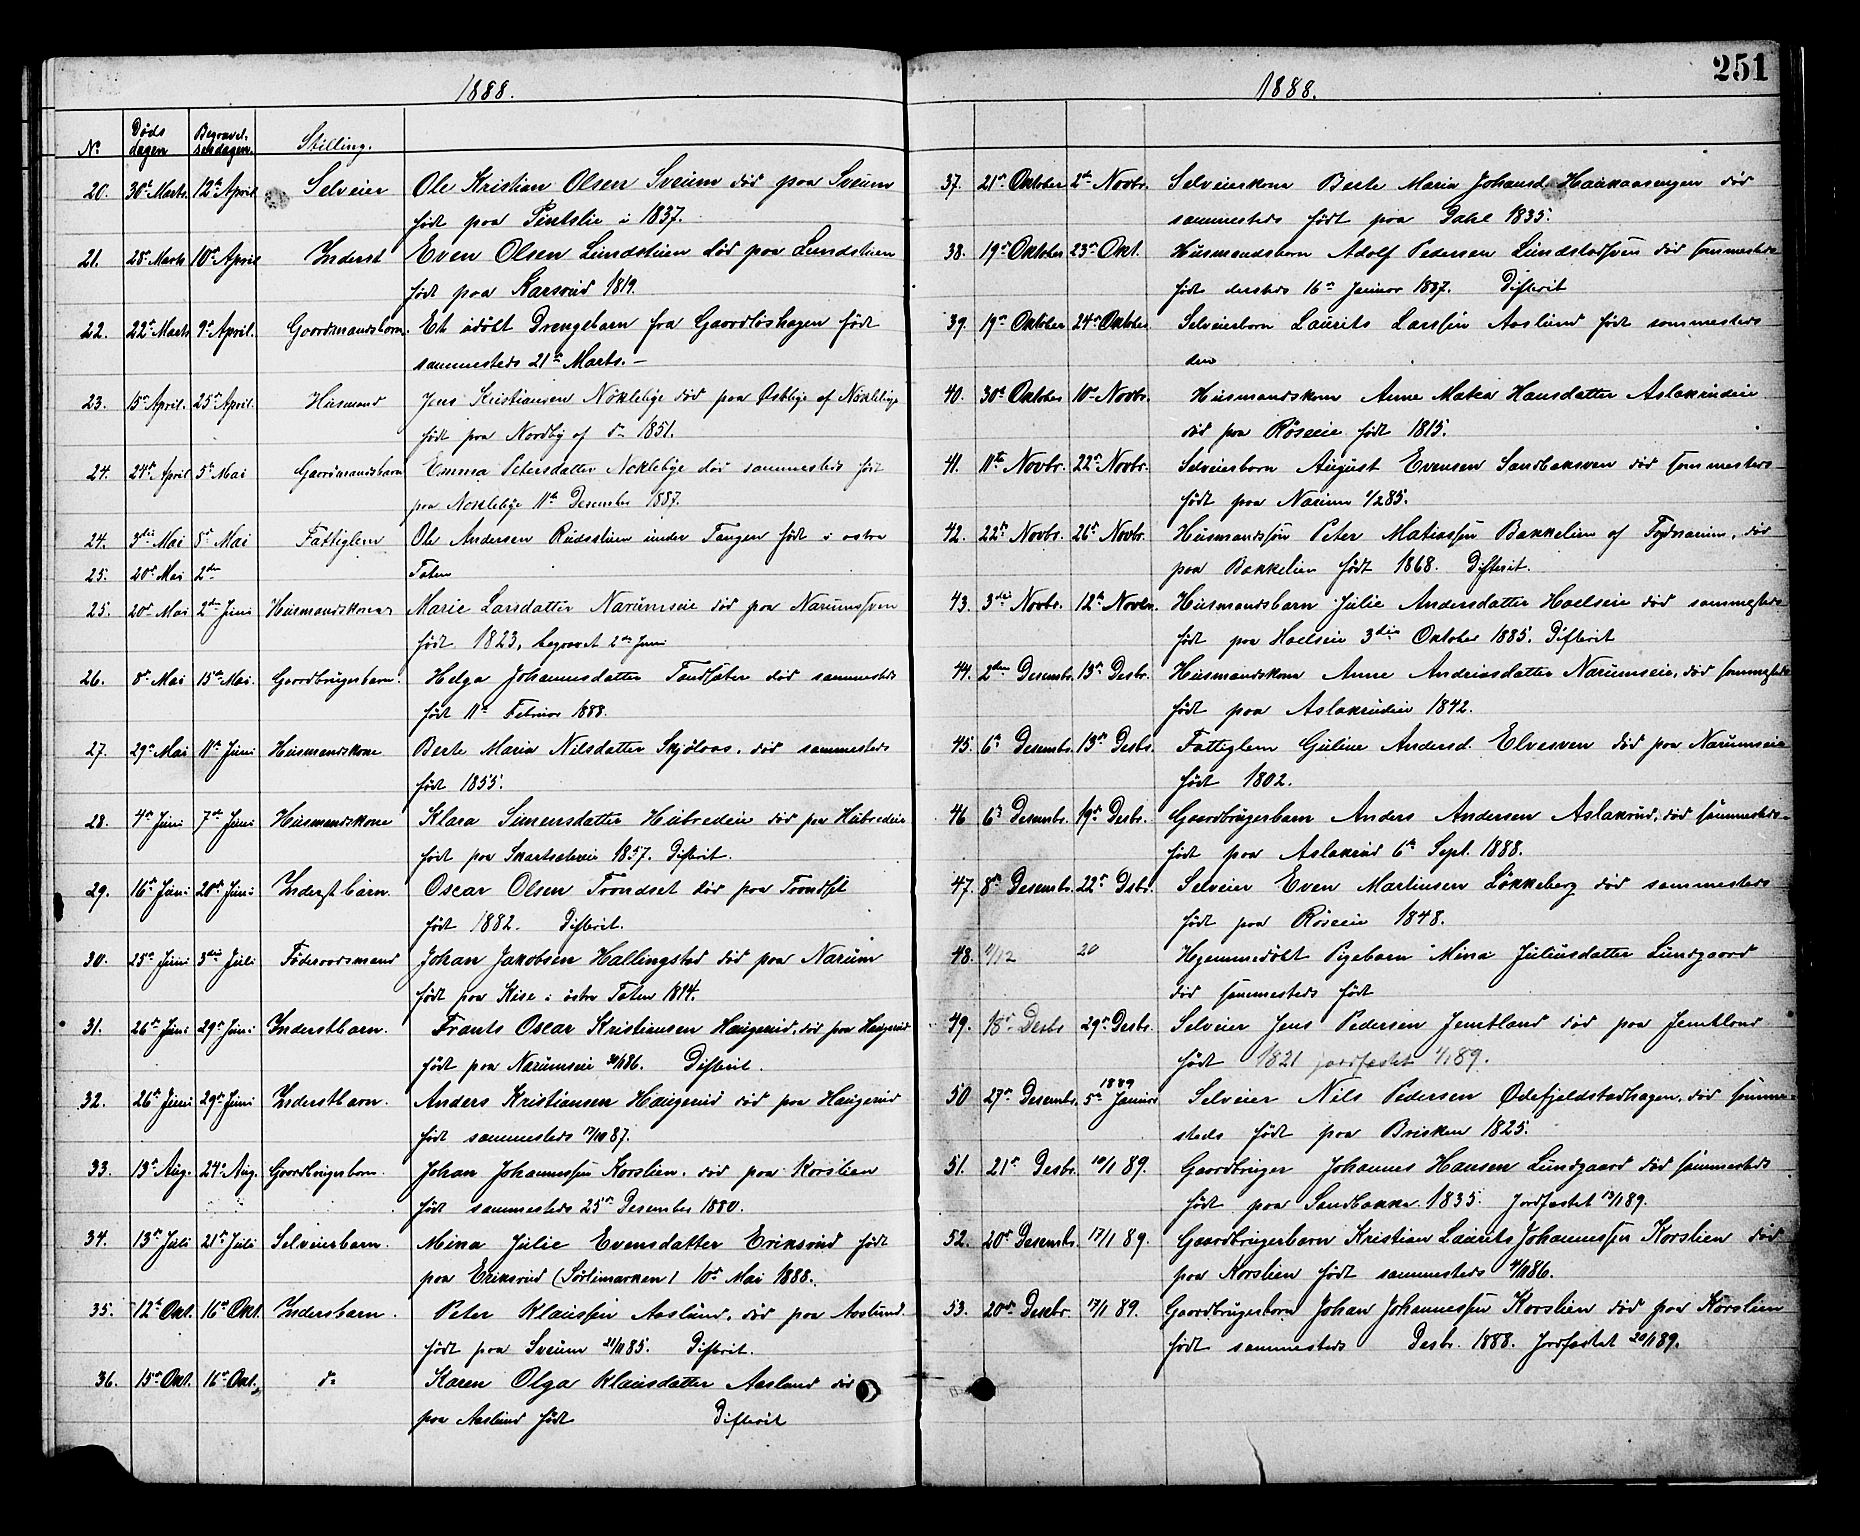 251
1888.
No
Døds
dagen
Begravel-
sesdagen.
Stilling.
20. 30te Marts. 12te April Selveier Ole Kristian Olsen Sveum død paa Sveum
født paa i 1837.
21. 28de Marts 10de April Inderst Even Olsen Lundstuen død paa Lundstuen
født paa Karsrud 1819.
22. 22de Marts 9de April. Gaardmandsbarn. Et udøbt Drengebarn fra Gaardløshagen født
sammesteds 21de Marts. –
23. 15de April. 25de April. Husmand Jens Kristiansen Nøklebye død paa Østbye af Nøklebye
født paa Nordby af do 1851.
24. 24de April 5te Mai Gaardmandsbarn Emma Petersdatter Noklebye død sammesteds født
paa Noklebye 11te Desember 1887.
24. 3die Mai 8de Mai Fattiglem Ole Andersen Rudsstuen under Tangen født i østre
25. 20de Mai 2den Toten
25. 20de Mai 2den Juni Husmandskone Marie Larsdatter Narumseie død paa Narumsven
født 1823, begravet 2den Juni
26. 8de Mai 15de Mai. Gaardbrugerbarn. Helga Johannesdatter Tandsæter død sammesteds
født 11te Februar 1888.
27. 29de Mai 11te Juni Husmandskone Berte Maria Nilsdatter Skjølaas, død sammesteds
født 1855.
28. 4de Juni 7de Juni Husmandskone Klara Simensdatter Hubredeie død paa Hubredeie
født paa 1857. Difterit.
29. 16de Juni 20de Juni Inderstbarn. Oscar Olsen Trondset død paa Trondset
født 1882. Difterit.
30. 25de Juni 3die Juli Føderaadsmand Johan Jakobsen Hallingstad død paa Narum
født paa Kise i østre Toten 1814.
31. 26de Juni 29de Juni Inderstbarn. Frants Oscar Kristiansen Haugerud, død paa Haugerud
født paa Narumseie 86. Difterit.
32. 26de Juni 29de Juni Inderstbarn. Anders Kristiansen Haugerud død paa Haugerud
født sammesteds 17/10 87.
33. 13de Aug. 24de Aug. Gaardbrugerbarn. Johan Johannessen Korslien, død paa Korslien
født sammesteds 25de Desember 1880.
34. 13de Juli 21de Juli Selveierbarn. Mina Julie Evensdatter Eriksrud født
paa Eriksrud (Sørlimarken) 10de Mai 1888.
35. 12te Okt. 16de Okt. Indersbarn. Peter Klaussen Aaslund, død paa Aaslund.
født paa Sveum 85. Difterit.
36. 15de Okt. 16de Okt. do Karen Olga Klausdatter Aasland død
paa Aaslund født Difterit
1888.
37. 21de Oktober 2den Novbr. Selveierkone Berte Maria Johansd. Haakaasengen død
sammesteds født paa Dahl 1835.
38. 19de Oktober 23de Okt. Husmandsbarn Adolf Pedersen Lundstadsven død sammesteds
født dersteds 16de Januar 1887. Difterit
39. 19de Oktober 24de Oktober Selveierbarn Laurits Larssen Aaslund født sammesteds
den
40. 30te Oktober 10de Novbr. Husmandskone Anne Matea Hansdatter Aslakrudeie
død paa Røseeie født 1815.
41. 11te Novbr. 22de Novbr. Selveierbarn August Evensen Sandbakven død sammesteds
født paa Narum 1/2 85.
42. 22de Novbr. 26de Novbr. Husmandssøn Peter Matiassen Bakkelien af død
paa Bakkelien født 1868. Difterit.
43. 3die Novbr. 12te Novbr. Husmandsbarn Julie Andersdatter Hoelseie død sammesteds
født paa Hoelseie 3die Oktober 1885. Difterit
44. 2den Desembr. 13de Desbr. Husmandskone Anne Andreasdatter Narumseie, død sammesteds
født paa Aslakrudeie 1842.
45. 6te Desembr. 13de Desbr. Fattiglem Guline Andersd. Elvesven død paa Narumseie
født 1802.
46 6te Desembr. 19de Desbr. Gaardbrugerbarn Anders Andersen Aslakrud, død sammesteds
født paa Aslakrud 6te Sept. 1888.
47. 8de Desembr. 22de Dsbr. Selveier Even Martinsen Løkkeberg død sammesteds
født paa Røseeie 1848.
48. /12 20 Hjemmedøbt Pigebarn Mina Juliusdatter Lundgaard
død sammesteds født
49. 18de Desbr 29de Desbr. Selveier Jens Pedersen Jemtland død paa Jemtland
født 1821 jordfæstet 1/1 89.
50 27de Desembr. 1889 5te Januar Selveier Nils Pedersen Ødefjeldstadhagen, død samme-
steds født paa Brisken 1825.
51. 21de Desbr. 10/1 89. Gaardbruger Johannes Hansen Lundgaard død sammesteds
født paa Sandbakke 1835. Jordfæstet 13/1 89.
52. 20de Desembr. 17/1 89. Gaardbrugerbarn Kristian Laurits Johannessen Korslien død
paa Korslien født sammesteds 86.
53. 20de Desbr. 17/1 89. Gaardbrugerbarn Johan Johannessen Korslien død paa Korslien
født sammesteds Desbr. 1888. Jordfæstet 20/1 89.